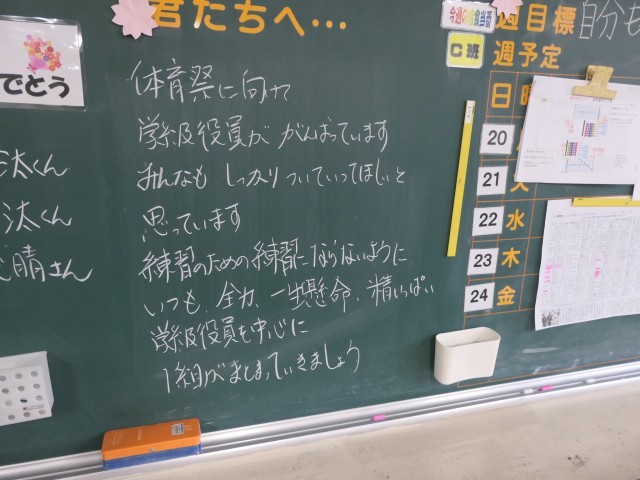 君たちへ…
体育祭に向けて
学級役員が がんばっています
みんなも しっかりついていってほしいと
思っています
練習のための練習にならないように
いつも、全力、一生懸命、精いっぱい
学級役員を中心に
1組がまとまっていきましょう
でとう
汰くん
汰くん
晴さん
今週の
C班
週目標
自分も
週予定
日
20
21
22 水
23 木
24 金